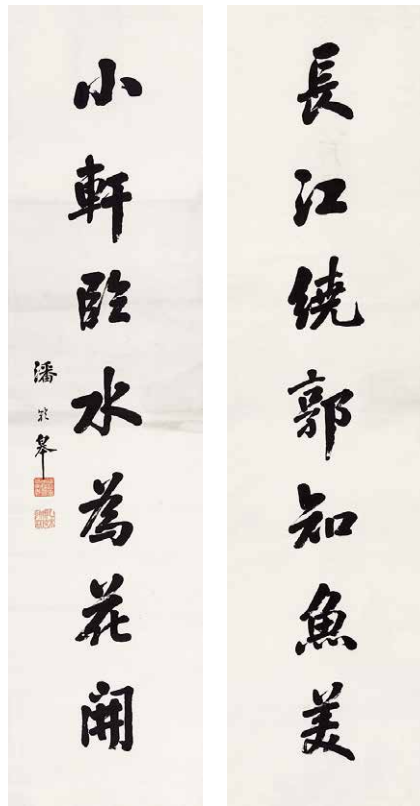 長江繞郭知魚美
小軒臨水為花開
潘於皋